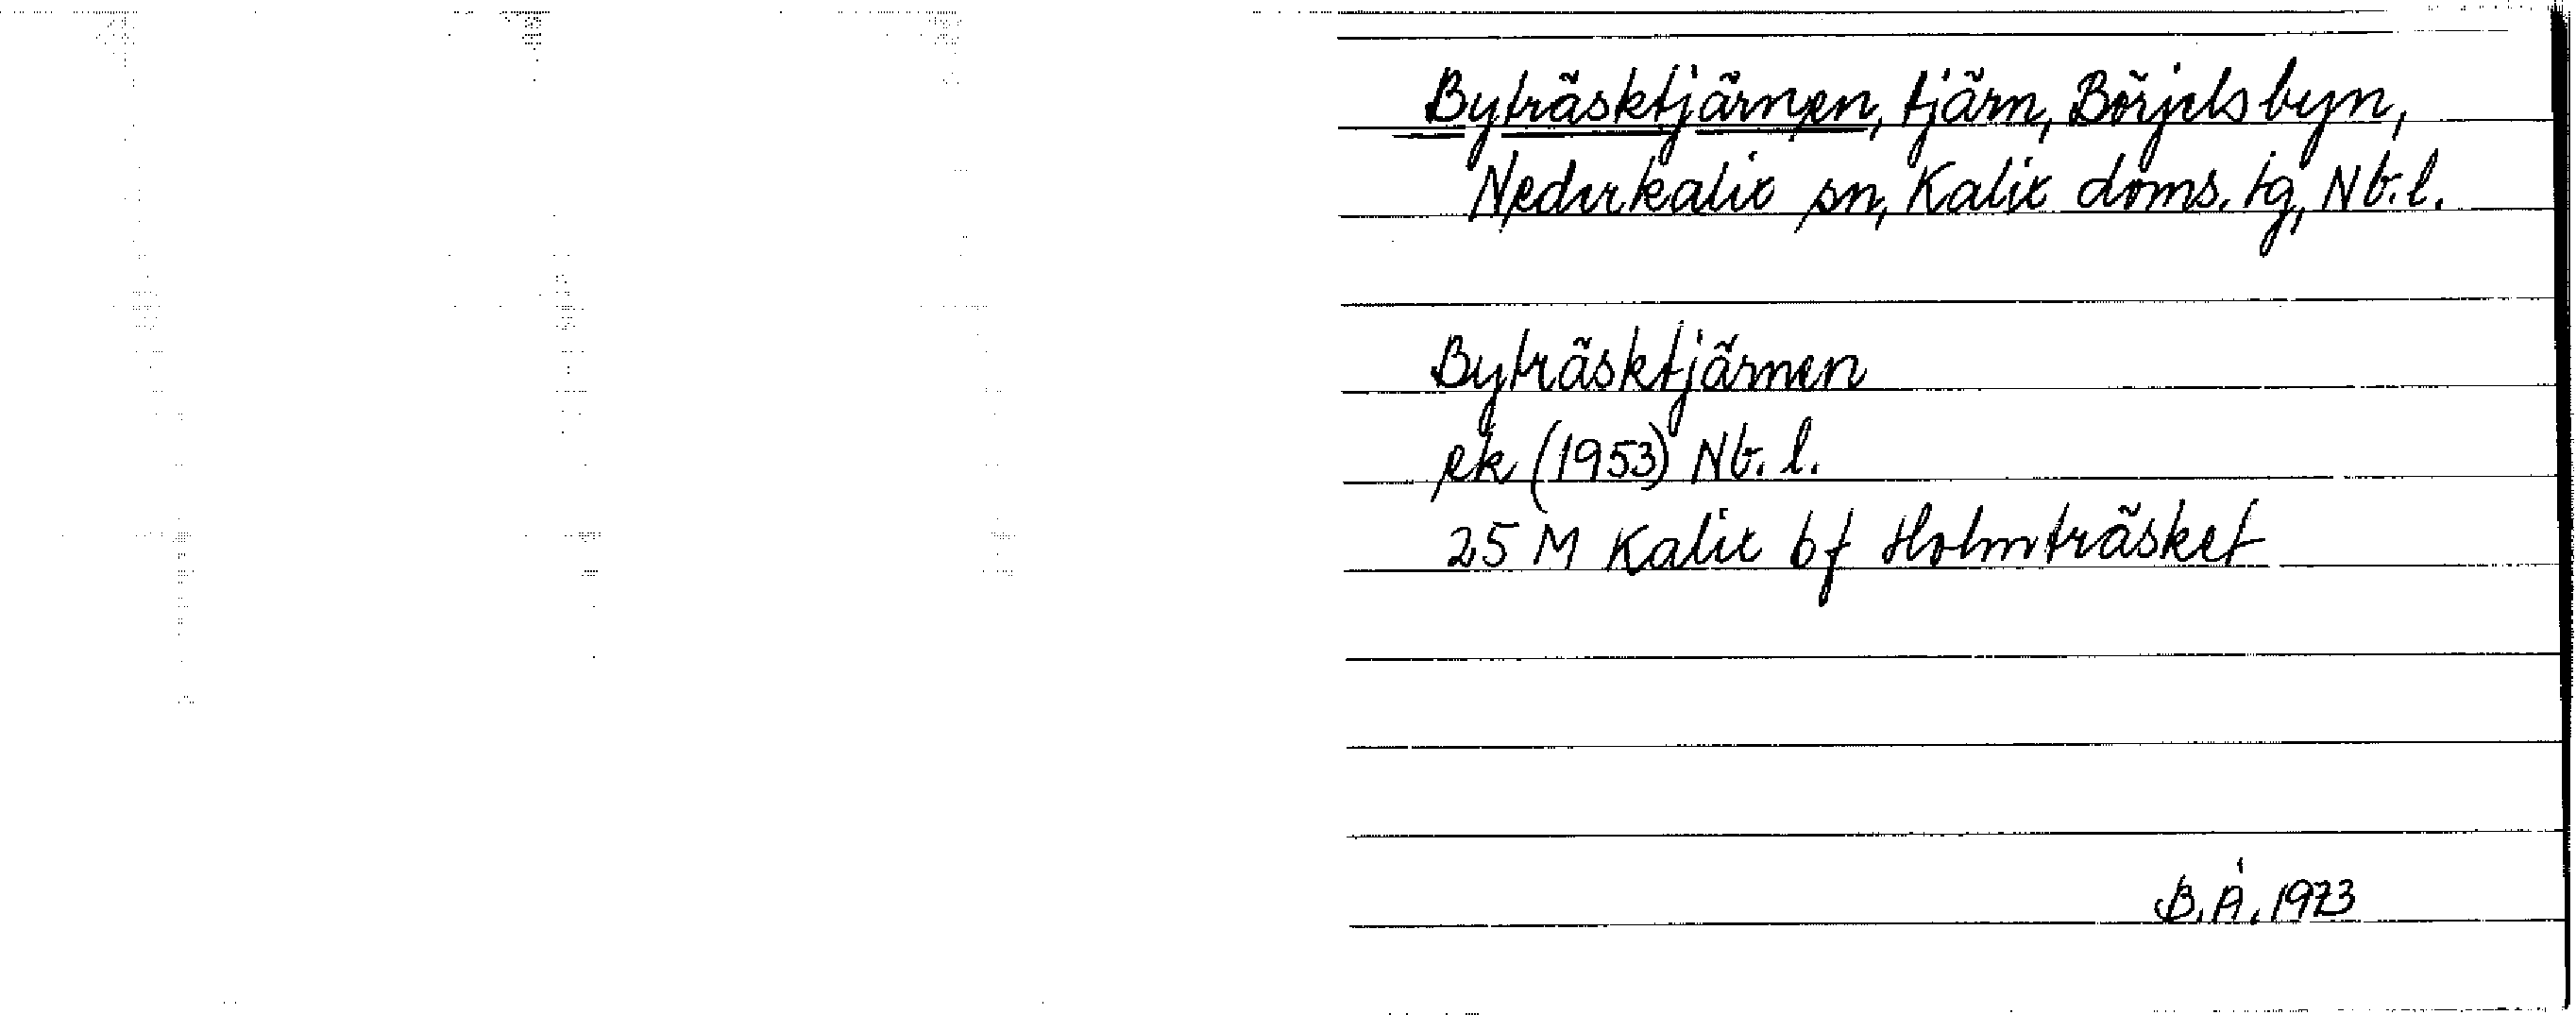 Byträsktjärnen, tjärn, Börjelsbyn,
Nederkalix sn, Kalix doms. tg, Nb. l.
Byträsktjärnen
ek (1953) Nb. l.
25 M Kalix bf Holmträsket
B. Å. 1973